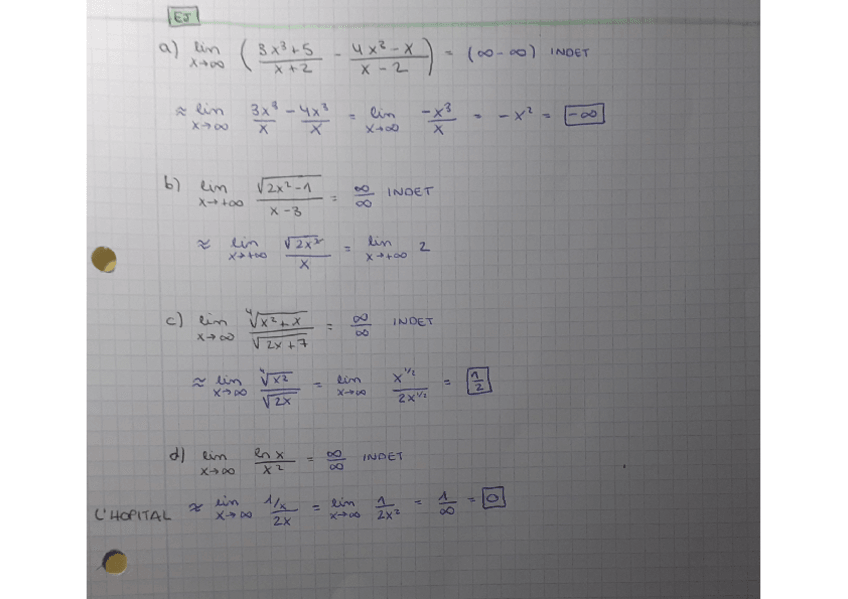 EJ
a) lim x→∞ ( 3x³+5 / x+2 - 4x³-x / x-2 ) = (∞-∞) INDET
≈ lim x→∞ 3x³/x - 4x³/x = lim x→∞ -x³/x = -x² = -∞
b) lim x→+∞ √(2x²-1) / x-3 = ∞/∞ INDET
≈ lim x→+∞ √(2x²) / x = lim x→+∞ 2
c) lim x→∞ ⁴√(x²+x) / √(2x+7) = ∞/∞ INDET
≈ lim x→∞ ⁴√(x²) / √(2x) = lim x→∞ x^1/2 / 2x^1/2 = 1/2
d) lim x→∞ ln x / x² = ∞/∞ INDET
L'HOPITAL ≈ lim x→∞ 1/x / 2x = lim x→∞ 1 / 2x² = 1/∞ = 0